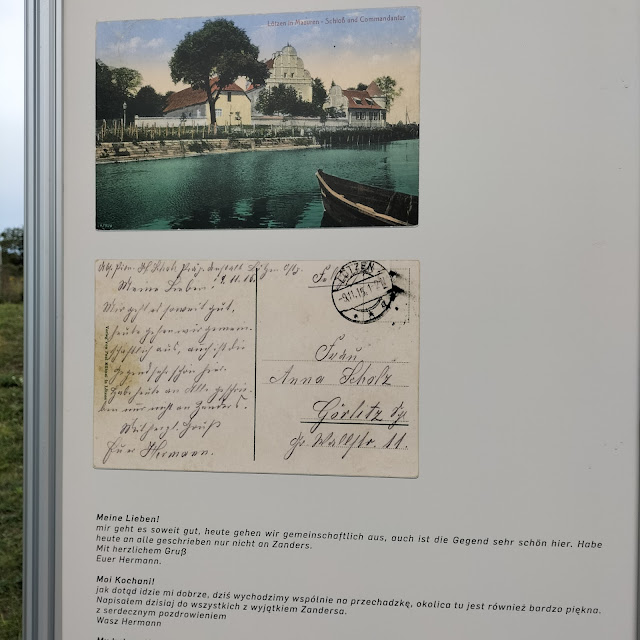 Lötzen in Masuren - Schloß und Commandantur
Meine Lieben! 9.11.16.
Mir geht es soweit gut,
heute gehen wir gemein-
schaftlich aus, auch ist die
Gegend sehr schön hier.
Habe heute an Alle geschrie-
ben nur nicht an Zanders.
Mit herzl. Gruß
Euer Hermann.
LÖTZEN
-9.11.16.
Frau
Anna Scholz
Görlitz
Gr. Wallstr. 11.
Meine Lieben!
mir geht es soweit gut, heute gehen wir gemeinschaftlich aus, auch ist die Gegend sehr schön hier. Habe
heute an alle geschrieben nur nicht an Zanders.
Mit herzlichem Gruß
Euer Hermann.
Moi Kochani!
jak dotąd idzie mi dobrze, dziś wychodzimy wspólnie na przechadzkę, okolica tu jest również bardzo piękna.
Napisałem dzisiaj do wszystkich z wyjątkiem Zandersa.
z serdecznym pozdrowieniem
Wasz Hermann